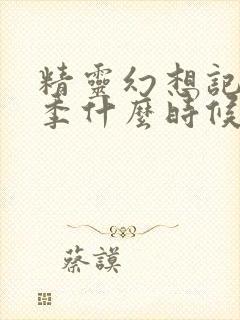 精靈幻想記
季什麼時候
蔡謨